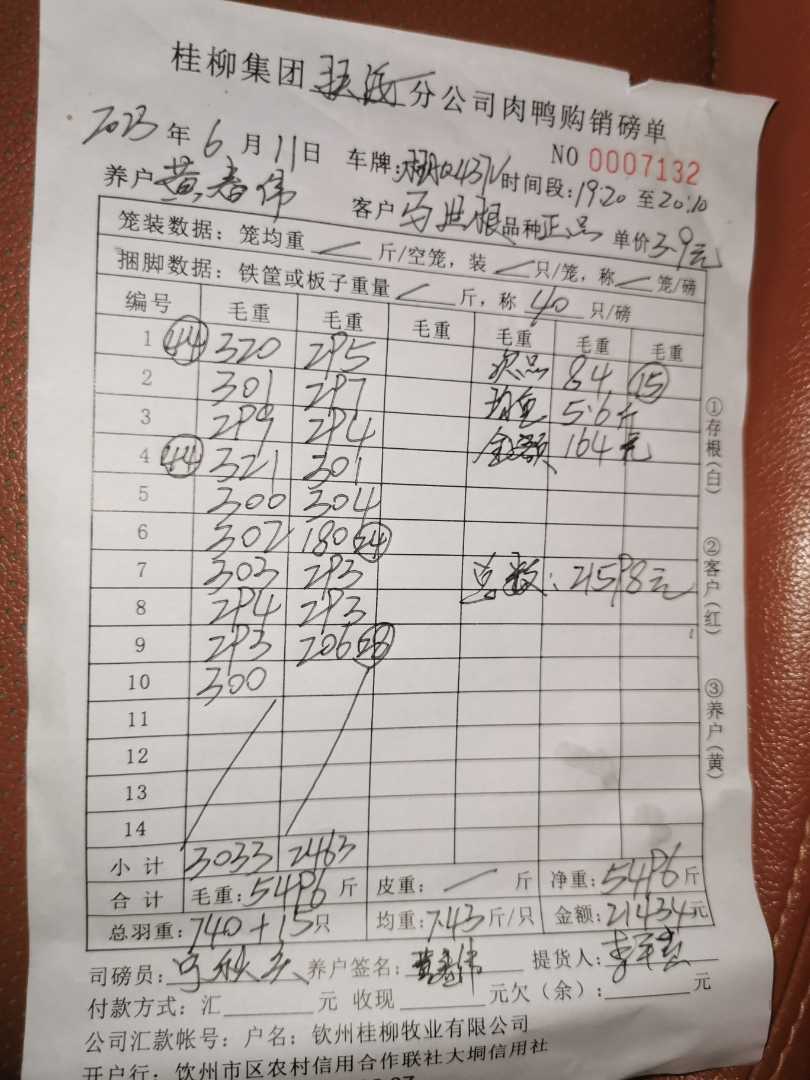 桂柳集团 分公司肉鸭购销磅单
NO 0007132
2023年6月11日 车牌: 时间段:19:20至20:10
养户 黄春伟 客户 马世根 品种 正品 单价3.9元
笼装数据：笼均重 / 斤/空笼，装 / 只/笼，称 / 笼/磅
捆脚数据：铁筐或板子重量 / 斤，称 40 只/磅
编号 毛重 毛重 毛重 毛重 毛重 毛重
1 44 320 295 次品 84 15
2 301 297 均重 5.6斤
3 299 294 金额 164元
4 44 321 301
5 300 304
6 302 180 24
7 303 293 总数: 21598元
8 294 293
9 293 206 28
10 300
11
12
13
14
小计 3033 2463
合计 毛重:5496斤 皮重: / 斤 净重:5496斤
总羽重:740+15只 均重:7.43斤/只 金额:21434元
司磅员: 养户签名:黄春伟 提货人:
付款方式:汇 元 收现 元欠(余): 元
公司汇款帐号：户名：钦州桂柳牧业有限公司
开户行：钦州市区农村信用合作联社大垌信用社
①存根(白)
②客户(红)
③养户(黄)